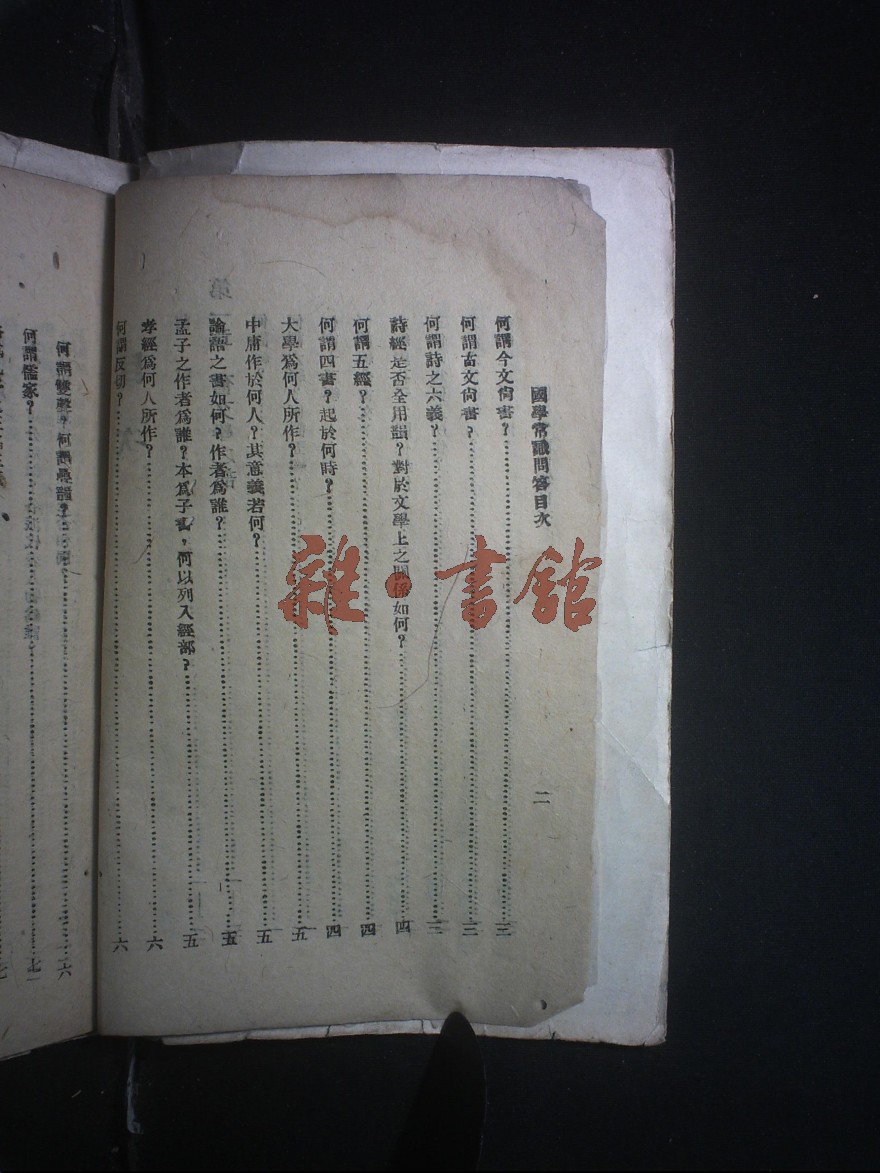 國學常識問答目次
二
何謂今文尚書?……三
何謂古文尚書?……三
何謂詩之六義?……三
詩經是否全用韻?對於文學上之關係如何?……四
何謂五經?……四
何謂四書?起於何時?……四
大學爲何人所作?……五
中庸作於何人?其意義若何?……五
論語之書如何?作者爲誰?……五
孟子之作者爲誰?本爲子書,何以列入經部?……五
孝經爲何人所作?……六
何謂反切?……六
何謂雙聲?何謂疊韻?……六
何謂儒家?……七
雜·書館